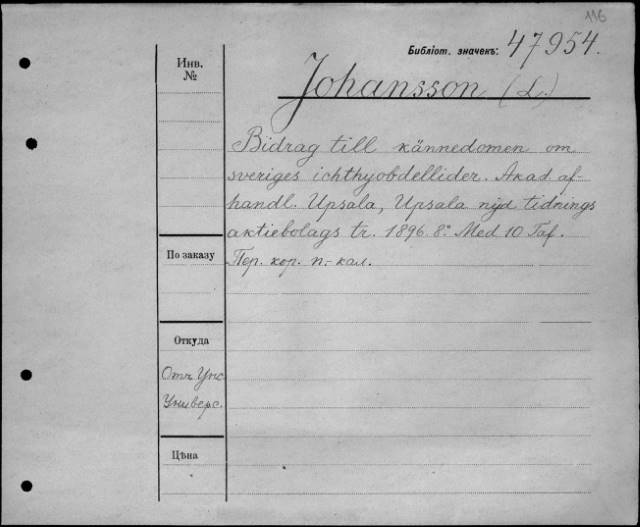 116
Библіот. значекъ: 47954.
Инв.
№
Johansson (L.)
Bidrag till kännedomen om
sveriges ichthyobdellider. Akad. af-
handl. Upsala, Upsala nyd tidnings
aktiebolags tr. 1896. 8º. Med 10 Taf.
По заказу
Пер. кор. п.-кал.
Откуда
Отъ Упс.
Универс.
Цѣна